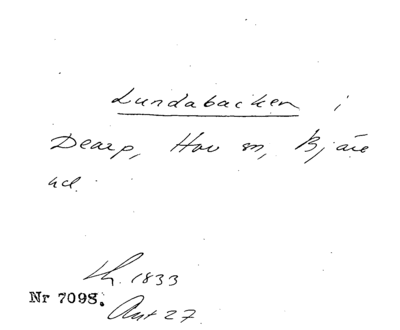 Lundabacken i
Dearp, Hov sn, Bjäre
hd.
th. 1833
Nr 7098.
Ant 27